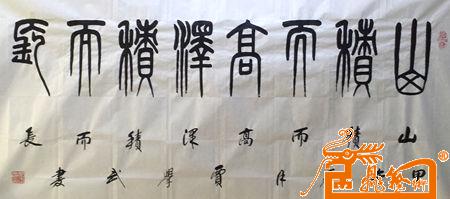 山積而高澤積而長
山積而高澤積而長
甲月賈學武書